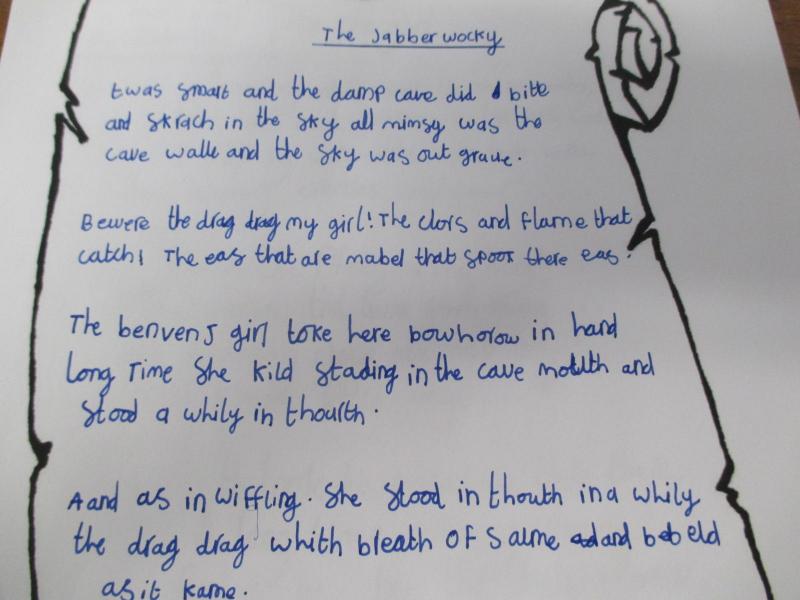 The Jabber wocky
twas smart and the damp cave did bite
and skrach in the sky all mimsy was the
cave walle and the sky was out graue.
Bewere the drag drag my girl! The clors and flame that
catch! The eas that are mabel that spoot there eas.
The benvens girl toke here bowhorow in hand
long Time She kild stading in the cave moulth and
stood a whily in thourth.
Aand as in wiffling. She stood in thouth in a whily
the drag drag whith bleath of salme and bebeld
as it kame.